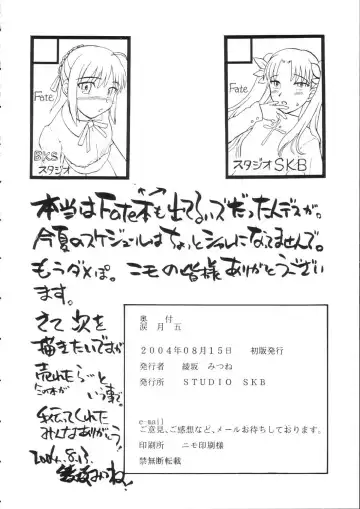 Fate
BXS
スタジオ
Fate
スタジオSKB
本当はFate本も出てるハズだったんデスが。
今夏のスケジュールはちょっとシャレになってませんで。
もうダメぽ。ニモの皆様ありがとうござい
ます。
さて次を
描きたいですが
売れたら…と
この本が
いう事で。
手伝ってくれた
みんなありがとう!
2004.8.13.
綾坂みつね
奥付
涙月五
2004年08月15日 初版発行
発行者 綾坂 みつね
発行所 STUDIO SKB
e-mail
ご意見、ご感想など、メールお待ちしております。
印刷所 ニモ印刷様
禁無断転載